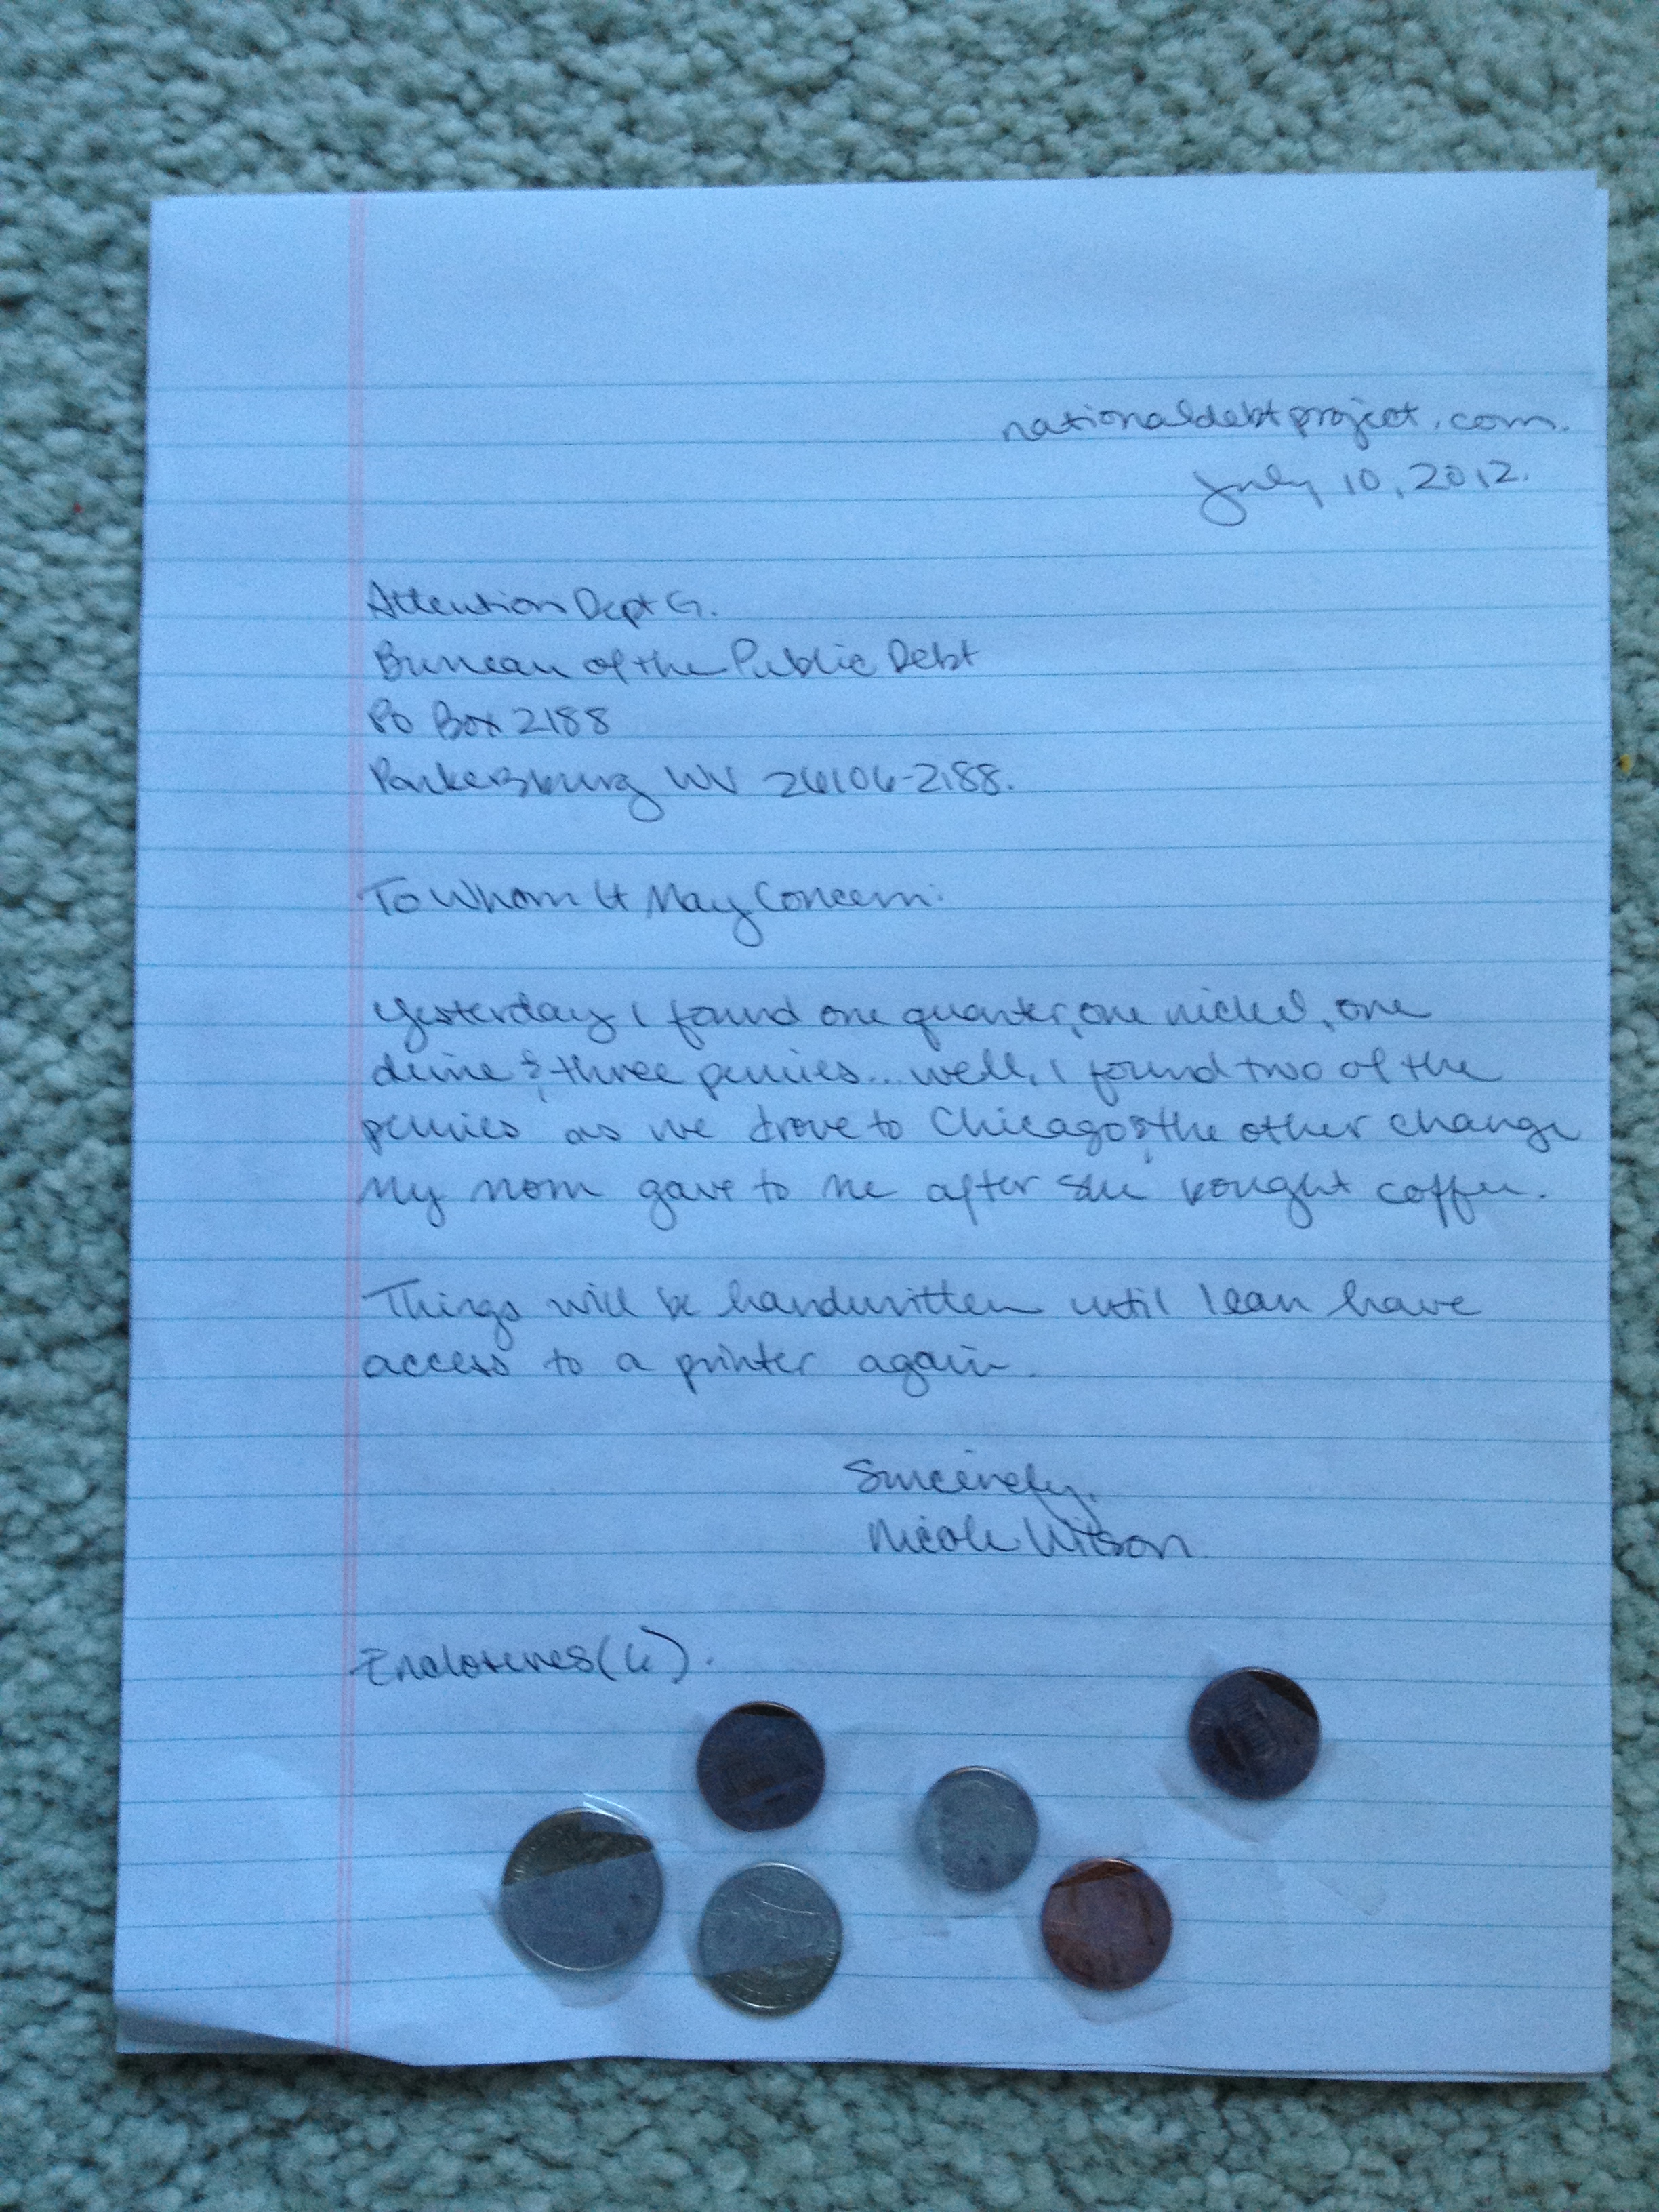 nationaldebtproject.com.
July 10, 2012.
Attention Dept G.
Bureau of the Public Debt
PO Box 2188
Parkersburg WV 26106-2188.
To Whom It May Concern:
Yesterday I found one quarter, one nickel, one
dime & three pennies... well, I found two of the
pennies as we drove to Chicago & the other change
my mom gave to me after she bought coffee.
Things will be handwritten until I can have
access to a printer again.
Sincerely,
Nicole Wilson
Enclosures (6).